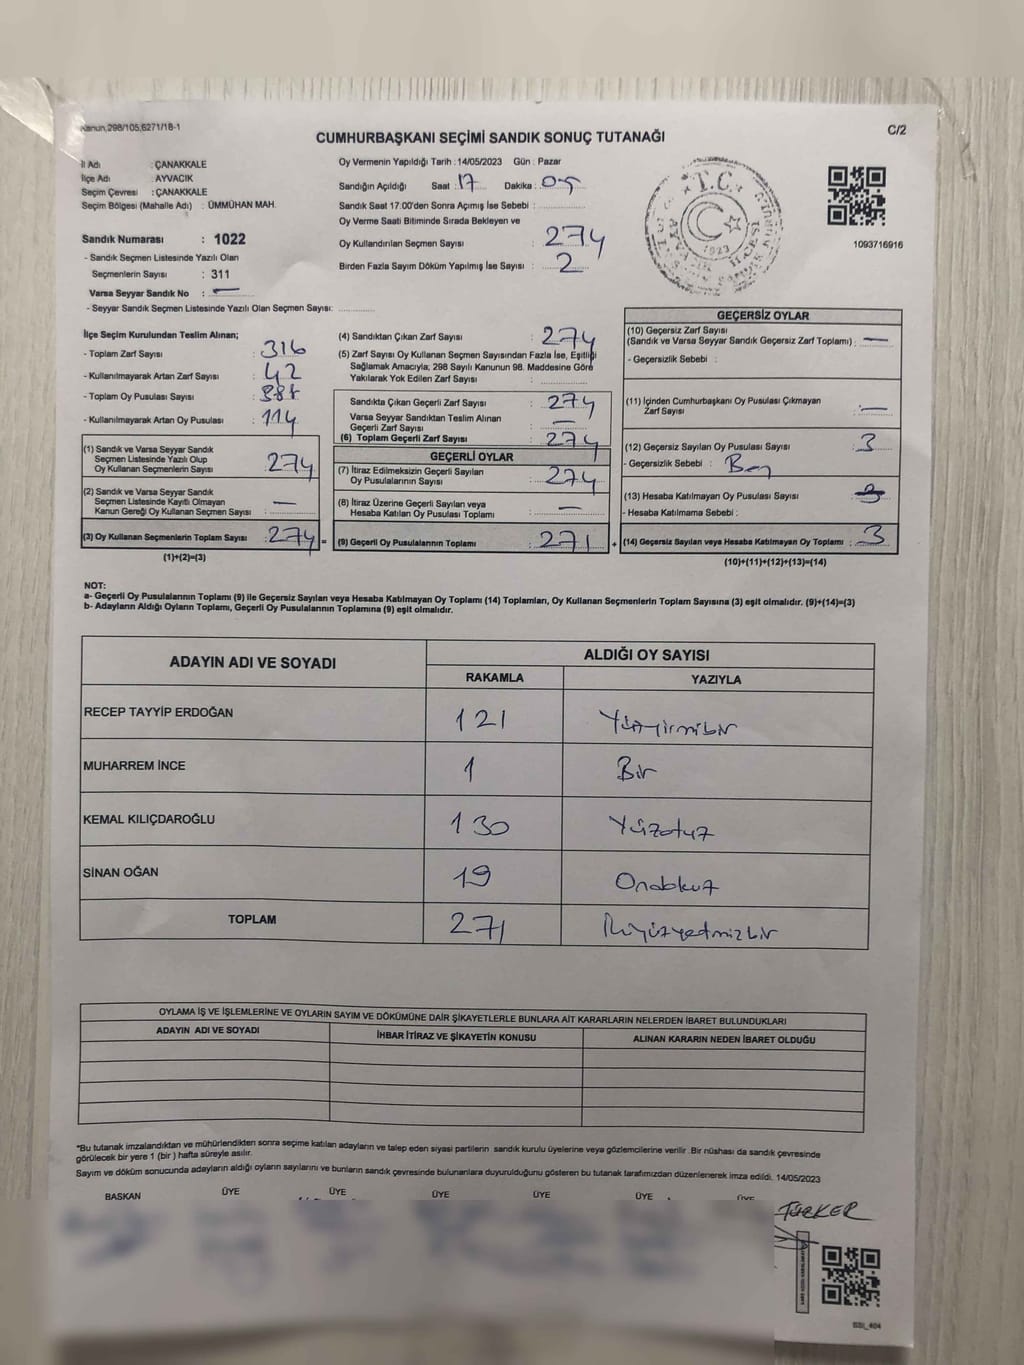 Kanun,298/105,6271/18-1
C/2
CUMHURBAŞKANI SEÇİMİ SANDIK SONUÇ TUTANAĞI
İl Adı : ÇANAKKALE
İlçe Adı : AYVACIK
Seçim Çevresi : ÇANAKKALE
Seçim Bölgesi (Mahalle Adı) : ÜMMÜHAN MAH.
Sandık Numarası : 1022
- Sandık Seçmen Listesinde Yazılı Olan
Seçmenlerin Sayısı : 311
Varsa Seyyar Sandık No : —
- Seyyar Sandık Seçmen Listesinde Yazılı Olan Seçmen Sayısı:
Oy Vermenin Yapıldığı Tarih : 14/05/2023 Gün : Pazar
Sandığın Açıldığı Saat : 17 Dakika : 05
Sandık Saat 17:00'den Sonra Açımış İse Sebebi :
Oy Verme Saati Bitiminde Sırada Bekleyen ve
Oy Kullandırılan Seçmen Sayısı : 274
Birden Fazla Sayım Döküm Yapılmış İse Sayısı : 2
T.C.
1923
1093716916
İlçe Seçim Kurulundan Teslim Alınan;
- Toplam Zarf Sayısı : 316
- Kullanılmayarak Artan Zarf Sayısı : 42
- Toplam Oy Pusulası Sayısı :
- Kullanılmayarak Artan Oy Pusulası : 114
(1) Sandık ve Varsa Seyyar Sandık
Seçmen Listesinde Yazılı Olup
Oy Kullanan Seçmenlerin Sayısı : 274
(2) Sandık ve Varsa Seyyar Sandık
Seçmen Listesinde Kayıtlı Olmayan
Kanun Gereği Oy Kullanan Seçmen Sayısı : —
(3) Oy Kullanan Seçmenlerin Toplam Sayısı : 274 =
(1)+(2)=(3)
(4) Sandıktan Çıkan Zarf Sayısı : 274
(5) Zarf Sayısı Oy Kullanan Seçmen Sayısından Fazla İse, Eşitliği
Sağlamak Amacıyla; 298 Sayılı Kanunun 98. Maddesine Göre
Yakılarak Yok Edilen Zarf Sayısı :
Sandıkta Çıkan Geçerli Zarf Sayısı : 274
Varsa Seyyar Sandıktan Teslim Alınan
Geçerli Zarf Sayısı : —
(6) Toplam Geçerli Zarf Sayısı : 274
GEÇERLİ OYLAR
(7) İtiraz Edilmeksizin Geçerli Sayılan
Oy Pusulalarının Sayısı : 274
(8) İtiraz Üzerine Geçerli Sayılan veya
Hesaba Katılan Oy Pusulası Toplamı : —
(9) Geçerli Oy Pusulalarının Toplamı : 271 +
GEÇERSİZ OYLAR
(10) Geçersiz Zarf Sayısı
(Sandık ve Varsa Seyyar Sandık Geçersiz Zarf Toplamı) : —
- Geçersizlik Sebebi :
(11) İçinden Cumhurbaşkanı Oy Pusulası Çıkmayan
Zarf Sayısı : —
(12) Geçersiz Sayılan Oy Pusulası Sayısı : 3
- Geçersizlik Sebebi :
(13) Hesaba Katılmayan Oy Pusulası Sayısı : 3
- Hesaba Katılmama Sebebi :
(14) Geçersiz Sayılan veya Hesaba Katılmayan Oy Toplamı : 3
(10)+(11)+(12)+(13)=(14)
NOT:
a- Geçerli Oy Pusulalarının Toplamı (9) ile Geçersiz Sayılan veya Hesaba Katılmayan Oy Toplamı (14) Toplamları, Oy Kullanan Seçmenlerin Toplam Sayısına (3) eşit olmalıdır. (9)+(14)=(3)
b- Adayların Aldığı Oyların Toplamı, Geçerli Oy Pusulalarının Toplamına (9) eşit olmalıdır.
ADAYIN ADI VE SOYADI
ALDIĞI OY SAYISI
RAKAMLA YAZIYLA
RECEP TAYYİP ERDOĞAN 121 Yüzyirmibir
MUHARREM İNCE 1 Bir
KEMAL KILIÇDAROĞLU 130 Yüzotuz
SİNAN OĞAN 19 Ondokuz
TOPLAM 271 İkiyüzyetmişbir
OYLAMA İŞ VE İŞLEMLERİNE VE OYLARIN SAYIM VE DÖKÜMÜNE DAİR ŞİKAYETLERLE BUNLARA AİT KARARLARIN NELERDEN İBARET BULUNDUKLARI
ADAYIN ADI VE SOYADI İHBAR İTİRAZ VE ŞİKAYETİN KONUSU ALINAN KARARIN NEDEN İBARET OLDUĞU
*Bu tutanak imzalandıktan ve mühürlendikten sonra seçime katılan adayların ve talep eden siyasi partilerin sandık kurulu üyelerine veya gözlemcilerine verilir. Bir nüshası da sandık çevresinde
görülecek bir yere 1 (bir ) hafta süreyle asılır.
Sayım ve döküm sonucunda adayların aldığı oyların sayılarını ve bunların sandık çevresinde bulunanlara duyurulduğunu gösteren bu tutanak tarafımızdan düzenlenerek imza edildi. 14/05/2023
BAŞKAN ÜYE ÜYE ÜYE ÜYE ÜYE ÜYE
TÜRKER
SSI_404